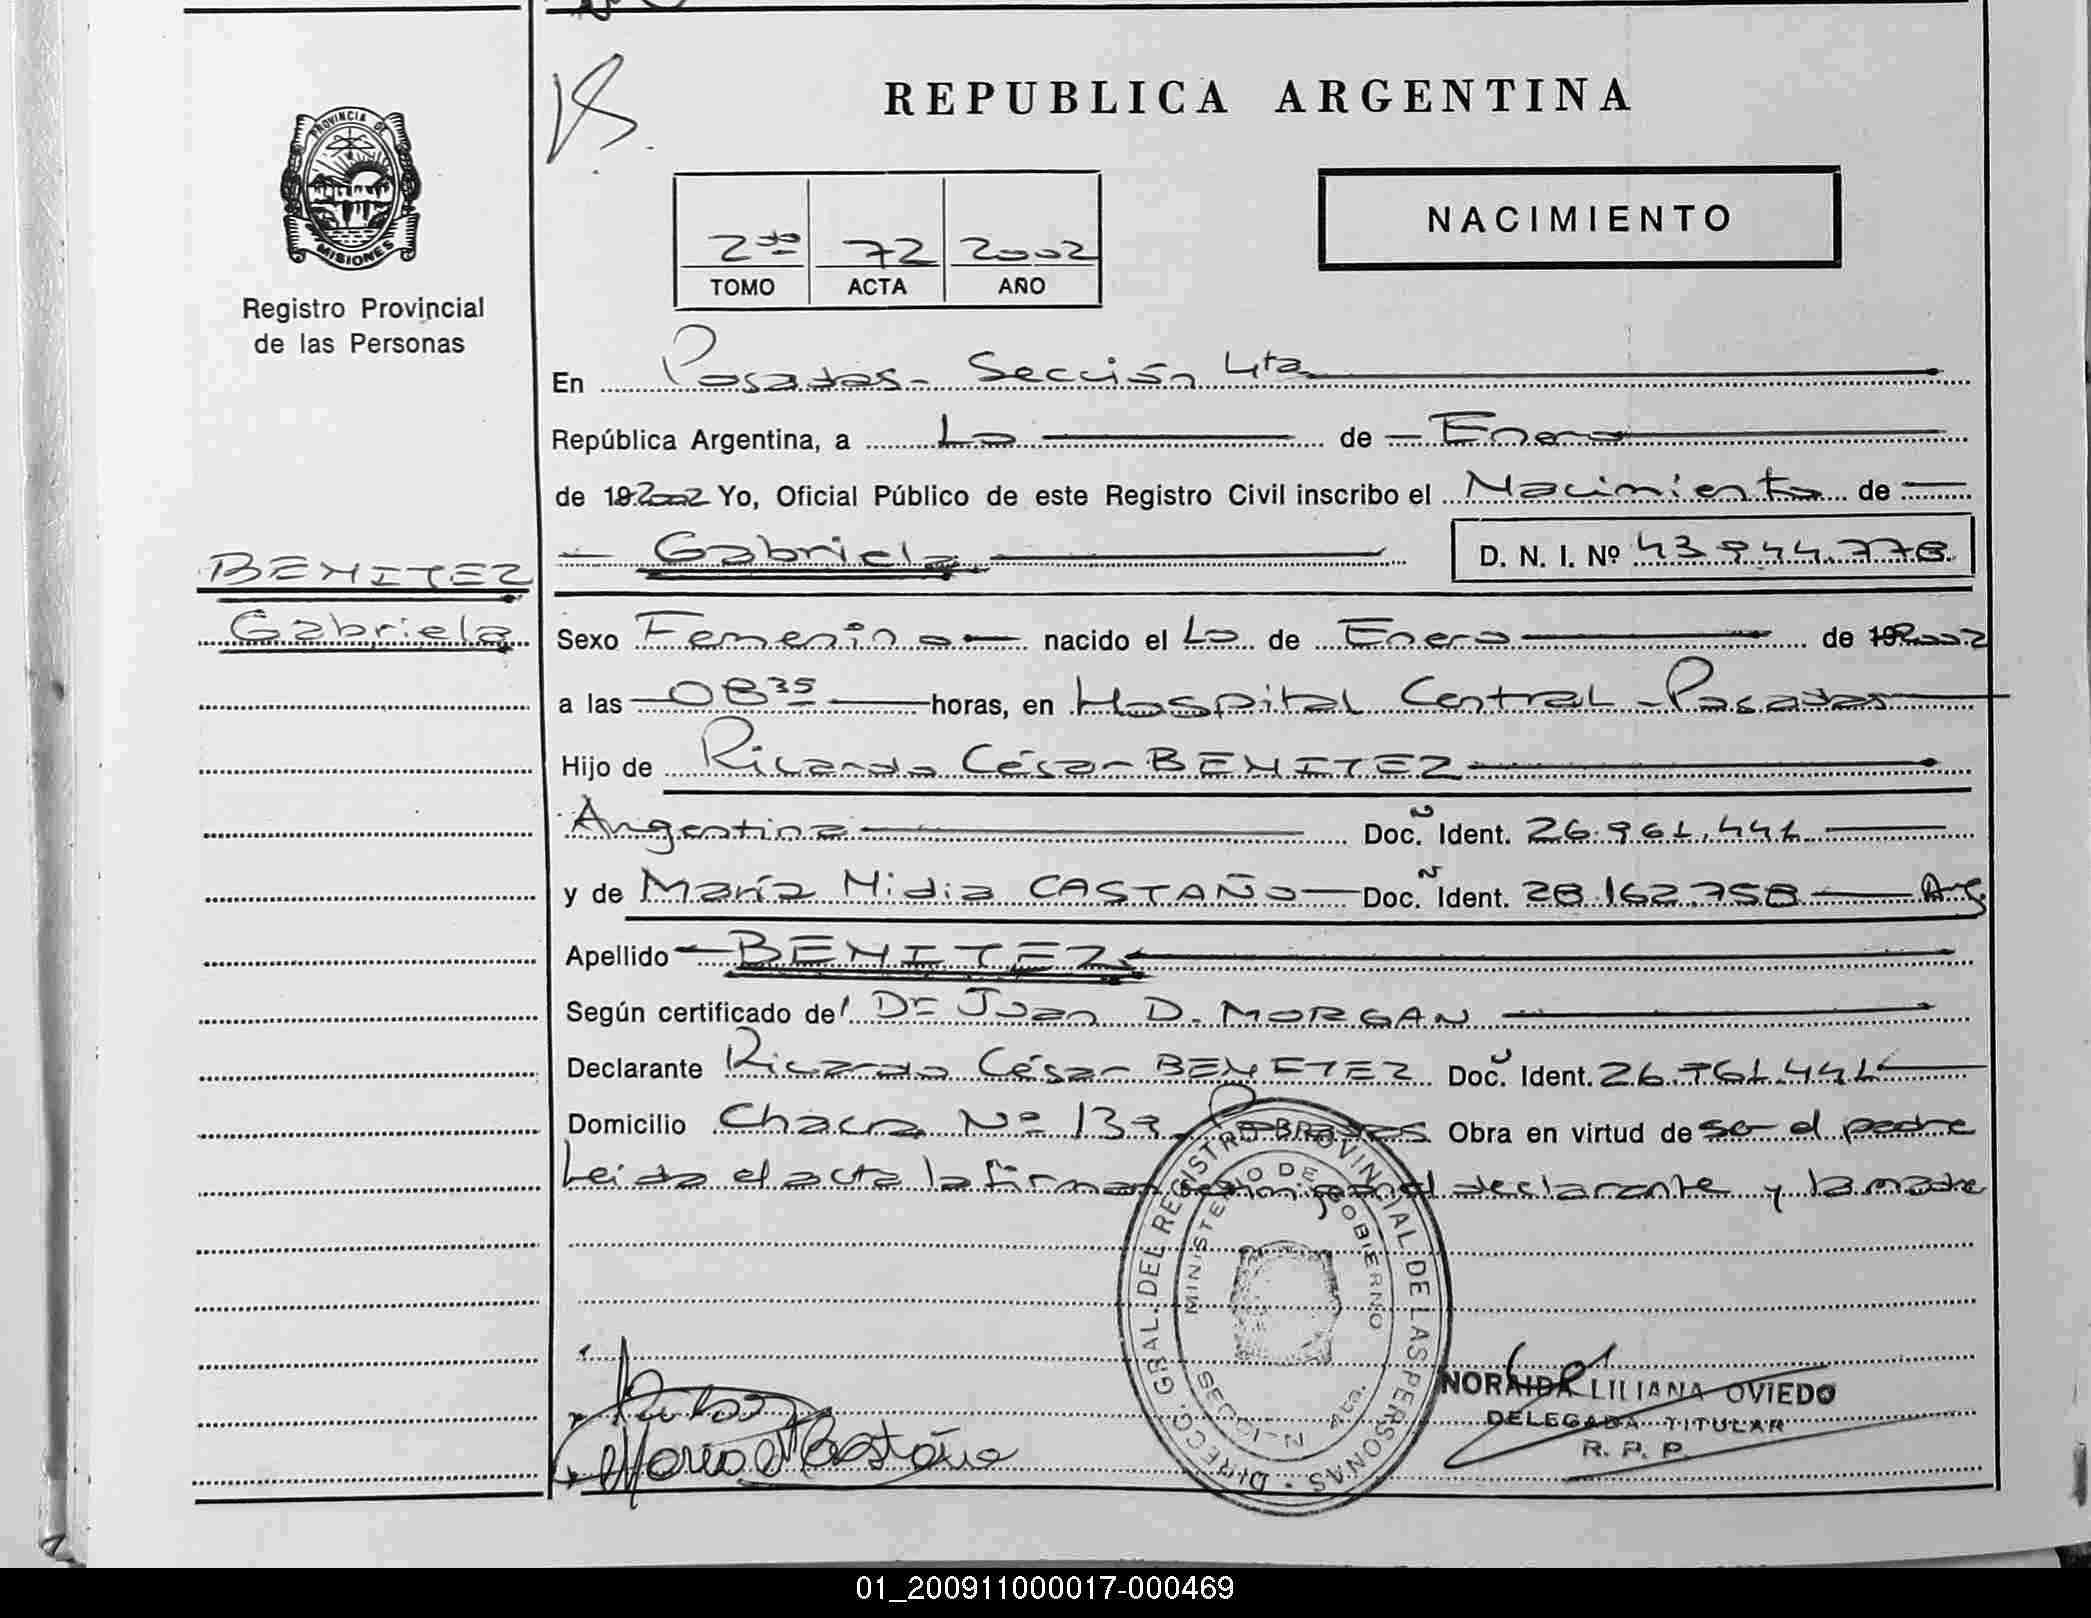 REPUBLICA ARGENTINA
PROVINCIA DE
MISIONES
Registro Provincial
de las Personas
NACIMIENTO
2do 72 2002
TOMO ACTA AÑO
En Posadas- Sección 4ta
República Argentina, a 10 de Enero
de 192002 Yo, Oficial Público de este Registro Civil inscribo el Nacimiento de
Gabriela D. N. I. Nº 43.944.778
BENITEZ
Gabriela
Sexo Femenino nacido el 10 de Enero de 192002
a las 08 35 horas, en Hospital Central - Posadas
Hijo de Ricardo César BENITEZ
Argentina Doc. Ident. 26.961.441
y de María Nidia CASTAÑO Doc. Ident. 28.162.758 Arg.
Apellido BENITEZ
Según certificado del Dr Juan D. MORGAN
Declarante Ricardo César BENITEZ Doc. Ident.
Domicilio Chacra Nº Posadas Obra en virtud de ser el padre
Leida el acta la firman conmigo el declarante y la madre
DIRECC. GRAL. DEL REGISTRO PROVINCIAL DE LAS PERSONAS
MINISTERIO DE GOBIERNO
SECCION 4ta.
Maria N Castaño
NORAIDA LILIANA OVIEDO
DELEGADA TITULAR
R. P. P.
01_200911000017-000469